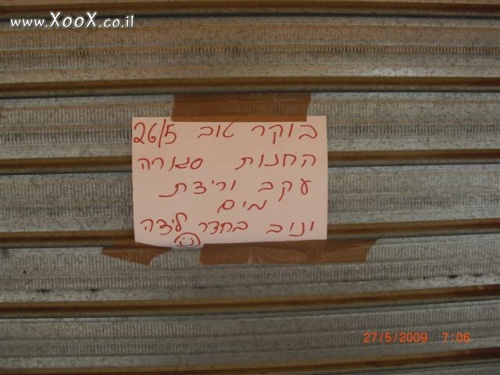 www.XooX.co.il
בוקר טוב 26/5
החנות סגורה
עקב ירידת
מים
יניב בחדר לידה
27/5/2009 7:06